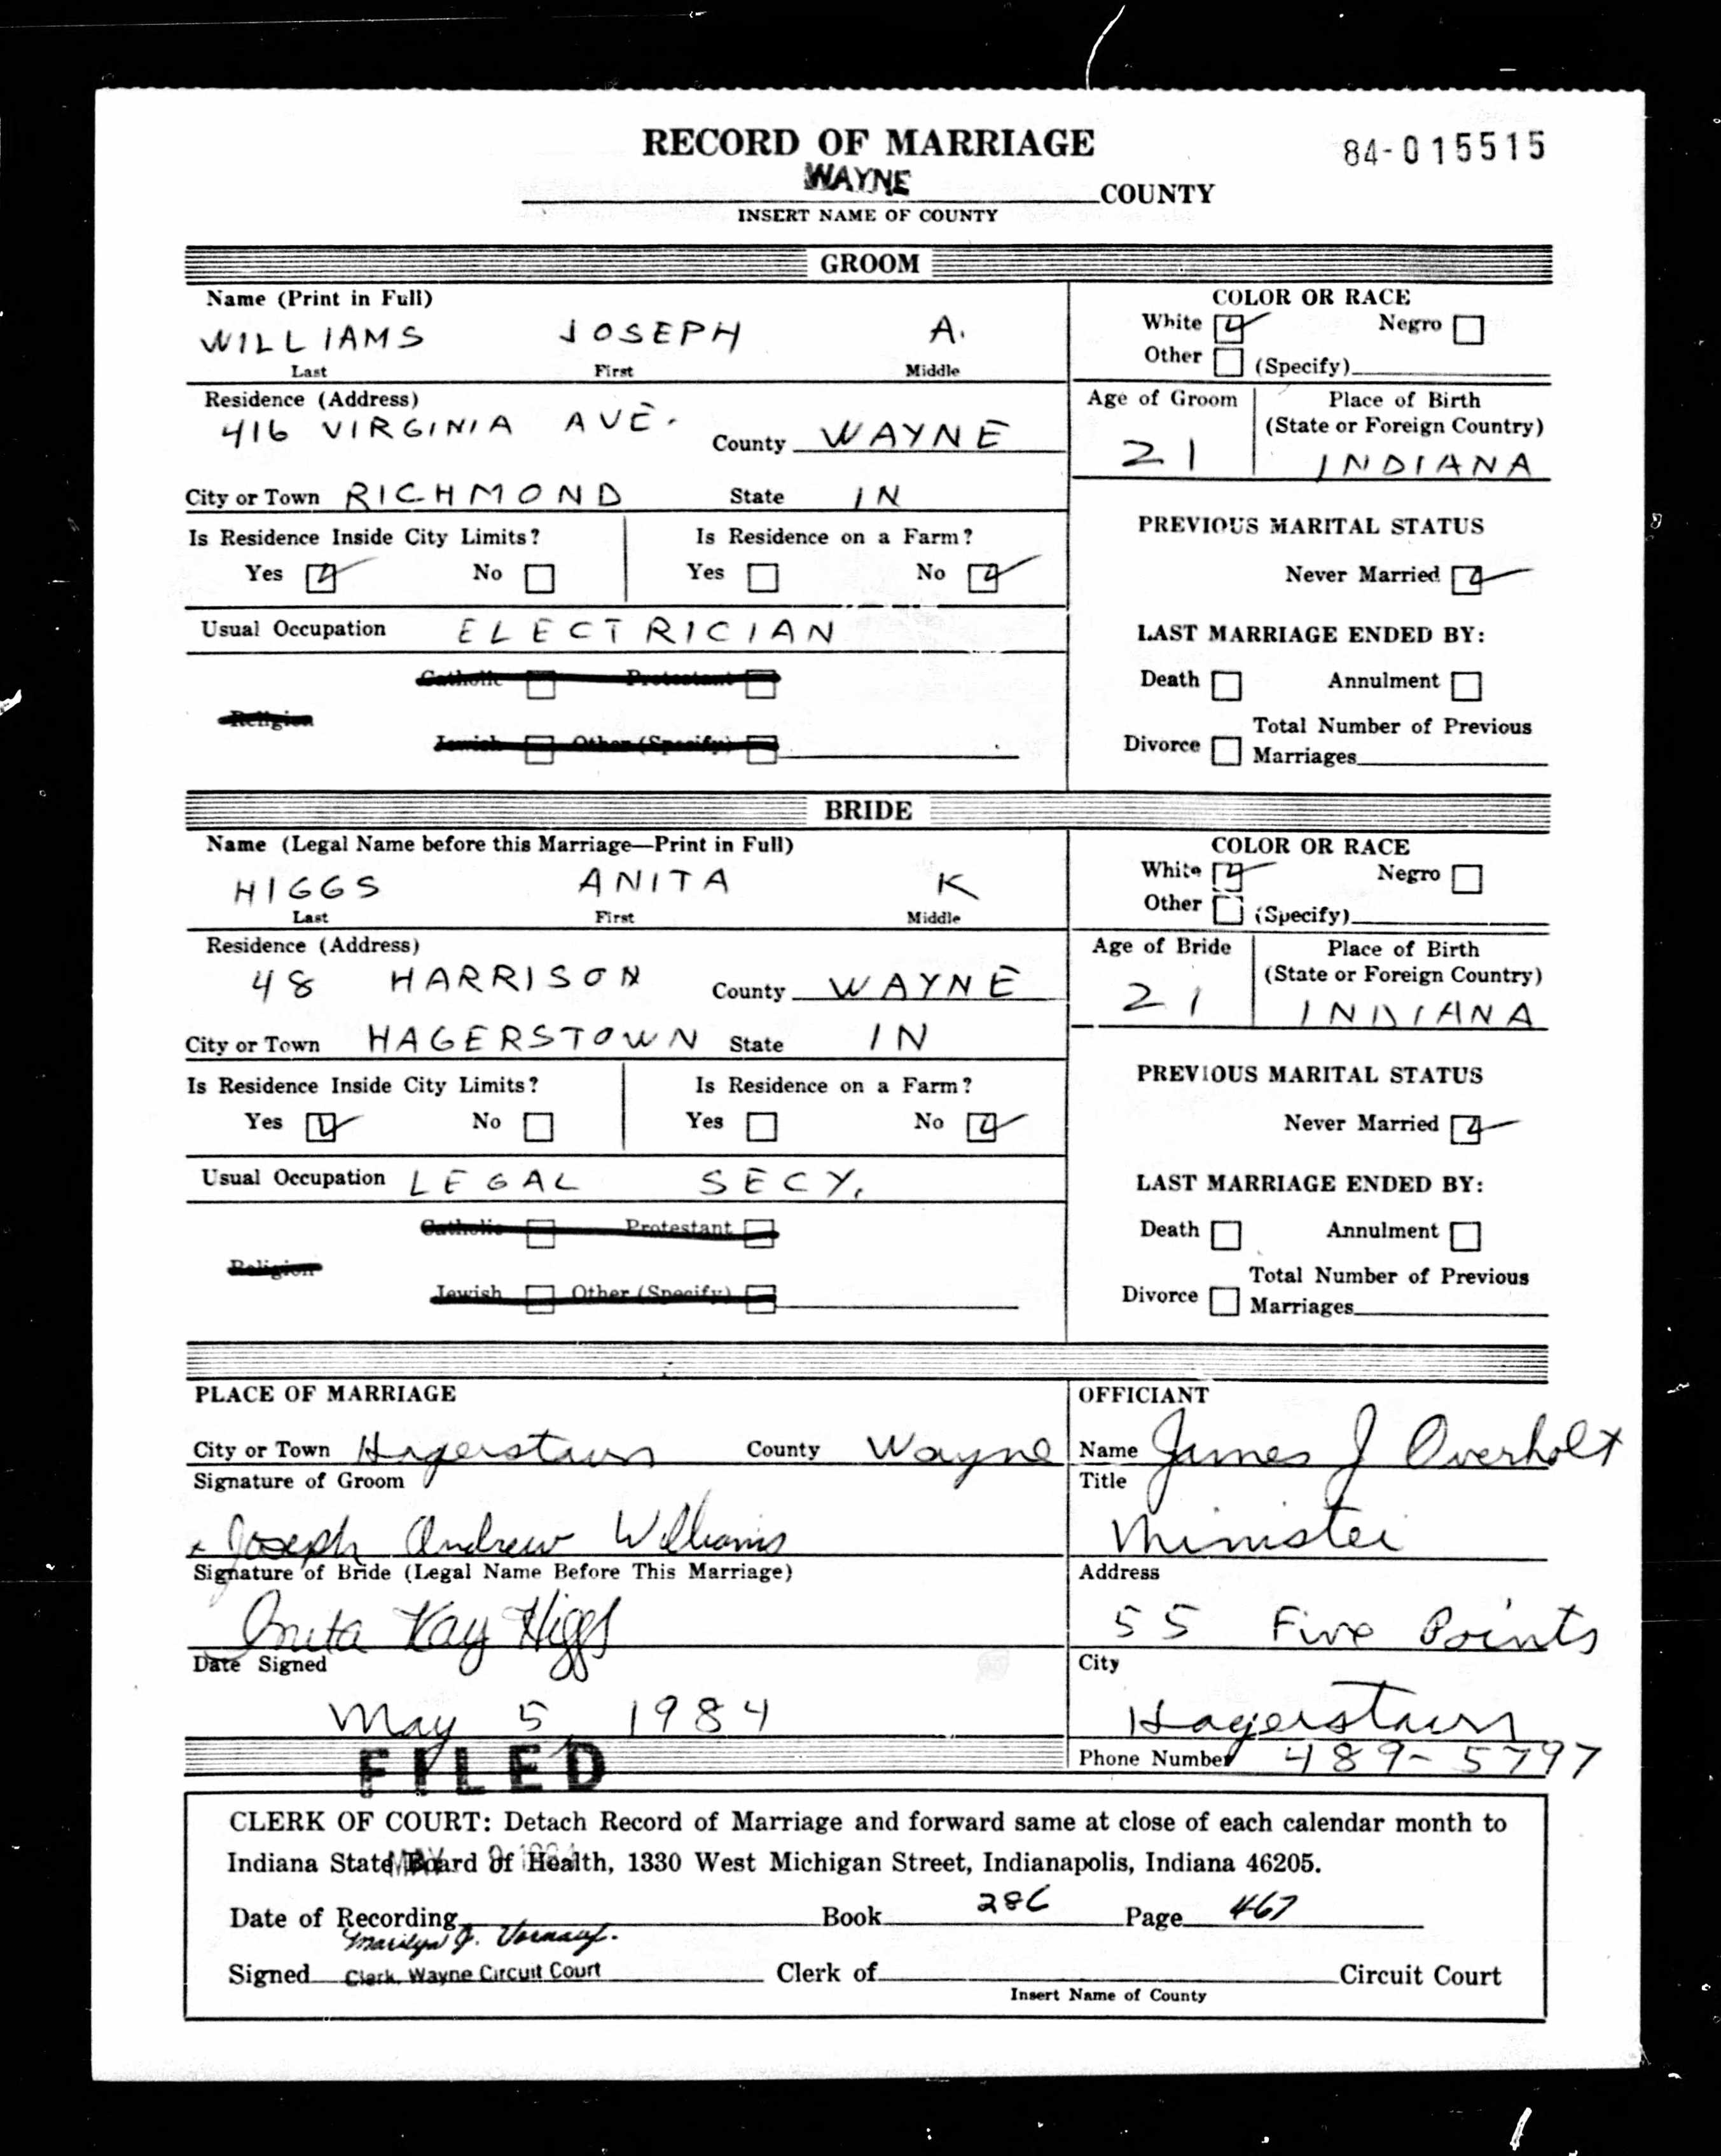 RECORD OF MARRIAGE
84-015515
WAYNE COUNTY
INSERT NAME OF COUNTY
GROOM
Name (Print in Full)
WILLIAMS JOSEPH A.
Last First Middle
COLOR OR RACE
White Negro
Other (Specify)
Residence (Address)
416 VIRGINIA AVE. County WAYNE
Age of Groom Place of Birth
(State or Foreign Country)
21 INDIANA
City or Town RICHMOND State IN
Is Residence Inside City Limits? Is Residence on a Farm?
Yes No Yes No
PREVIOUS MARITAL STATUS
Never Married
Usual Occupation ELECTRICIAN
LAST MARRIAGE ENDED BY:
Catholic Protestant
Death Annulment
Religion
Jewish Other (Specify)
Total Number of Previous
Divorce Marriages
BRIDE
Name (Legal Name before this Marriage—Print in Full)
HIGGS ANITA K
Last First Middle
COLOR OR RACE
White Negro
Other (Specify)
Residence (Address)
48 HARRISON County WAYNE
Age of Bride Place of Birth
(State or Foreign Country)
21 INDIANA
City or Town HAGERSTOWN State IN
Is Residence Inside City Limits? Is Residence on a Farm?
Yes No Yes No
PREVIOUS MARITAL STATUS
Never Married
Usual Occupation LEGAL SECY.
LAST MARRIAGE ENDED BY:
Catholic Protestant
Death Annulment
Religion
Jewish Other (Specify)
Total Number of Previous
Divorce Marriages
PLACE OF MARRIAGE
City or Town Hagerstown County Wayne
Signature of Groom
Joseph Andrew Williams
Signature of Bride (Legal Name Before This Marriage)
Anita Kay Higgs
Date Signed
May 5, 1984
OFFICIANT
Name James J Overholt
Title
Minister
Address
55 Five Points
City
Hagerstown
Phone Number 489-5797
FILED
CLERK OF COURT: Detach Record of Marriage and forward same at close of each calendar month to
Indiana State Board of Health, 1330 West Michigan Street, Indianapolis, Indiana 46205.
MAY 1984
Date of Recording Book 286 Page 467
Marilyn J.
Signed Clerk, Wayne Circuit Court Clerk of Circuit Court
Insert Name of County